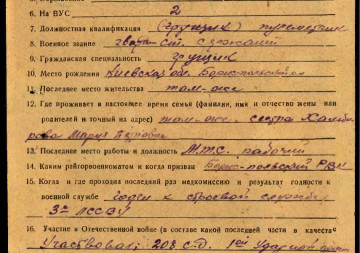 6. На ВУС 2
7. Должностная квалификация (грузчик) пулеметчик
8. Военное звание гвард. ст. сержант
9. Гражданская специальность грузчик
10. Место рождения Киевская обл. Бориспольский
11. Последнее место жительства там-же
12. Где проживает в настоящее время семья (фамилии, имя и отчество жены или
родителей и точный на адрес) там-же, сестра
Мария
13. Последнее место работы и должность М.Т.С. рабочий
14. Каким райгорвоенкоматом и когда призван Борис-польский РВК
15. Когда и где проходил последний раз медкомиссию и результат годности к
военной службе годен к строевой службе
16. Участие в Отечественной войне (в составе какой последней части в качестве
Участвовал: 208 с.д. 1ой Ударной